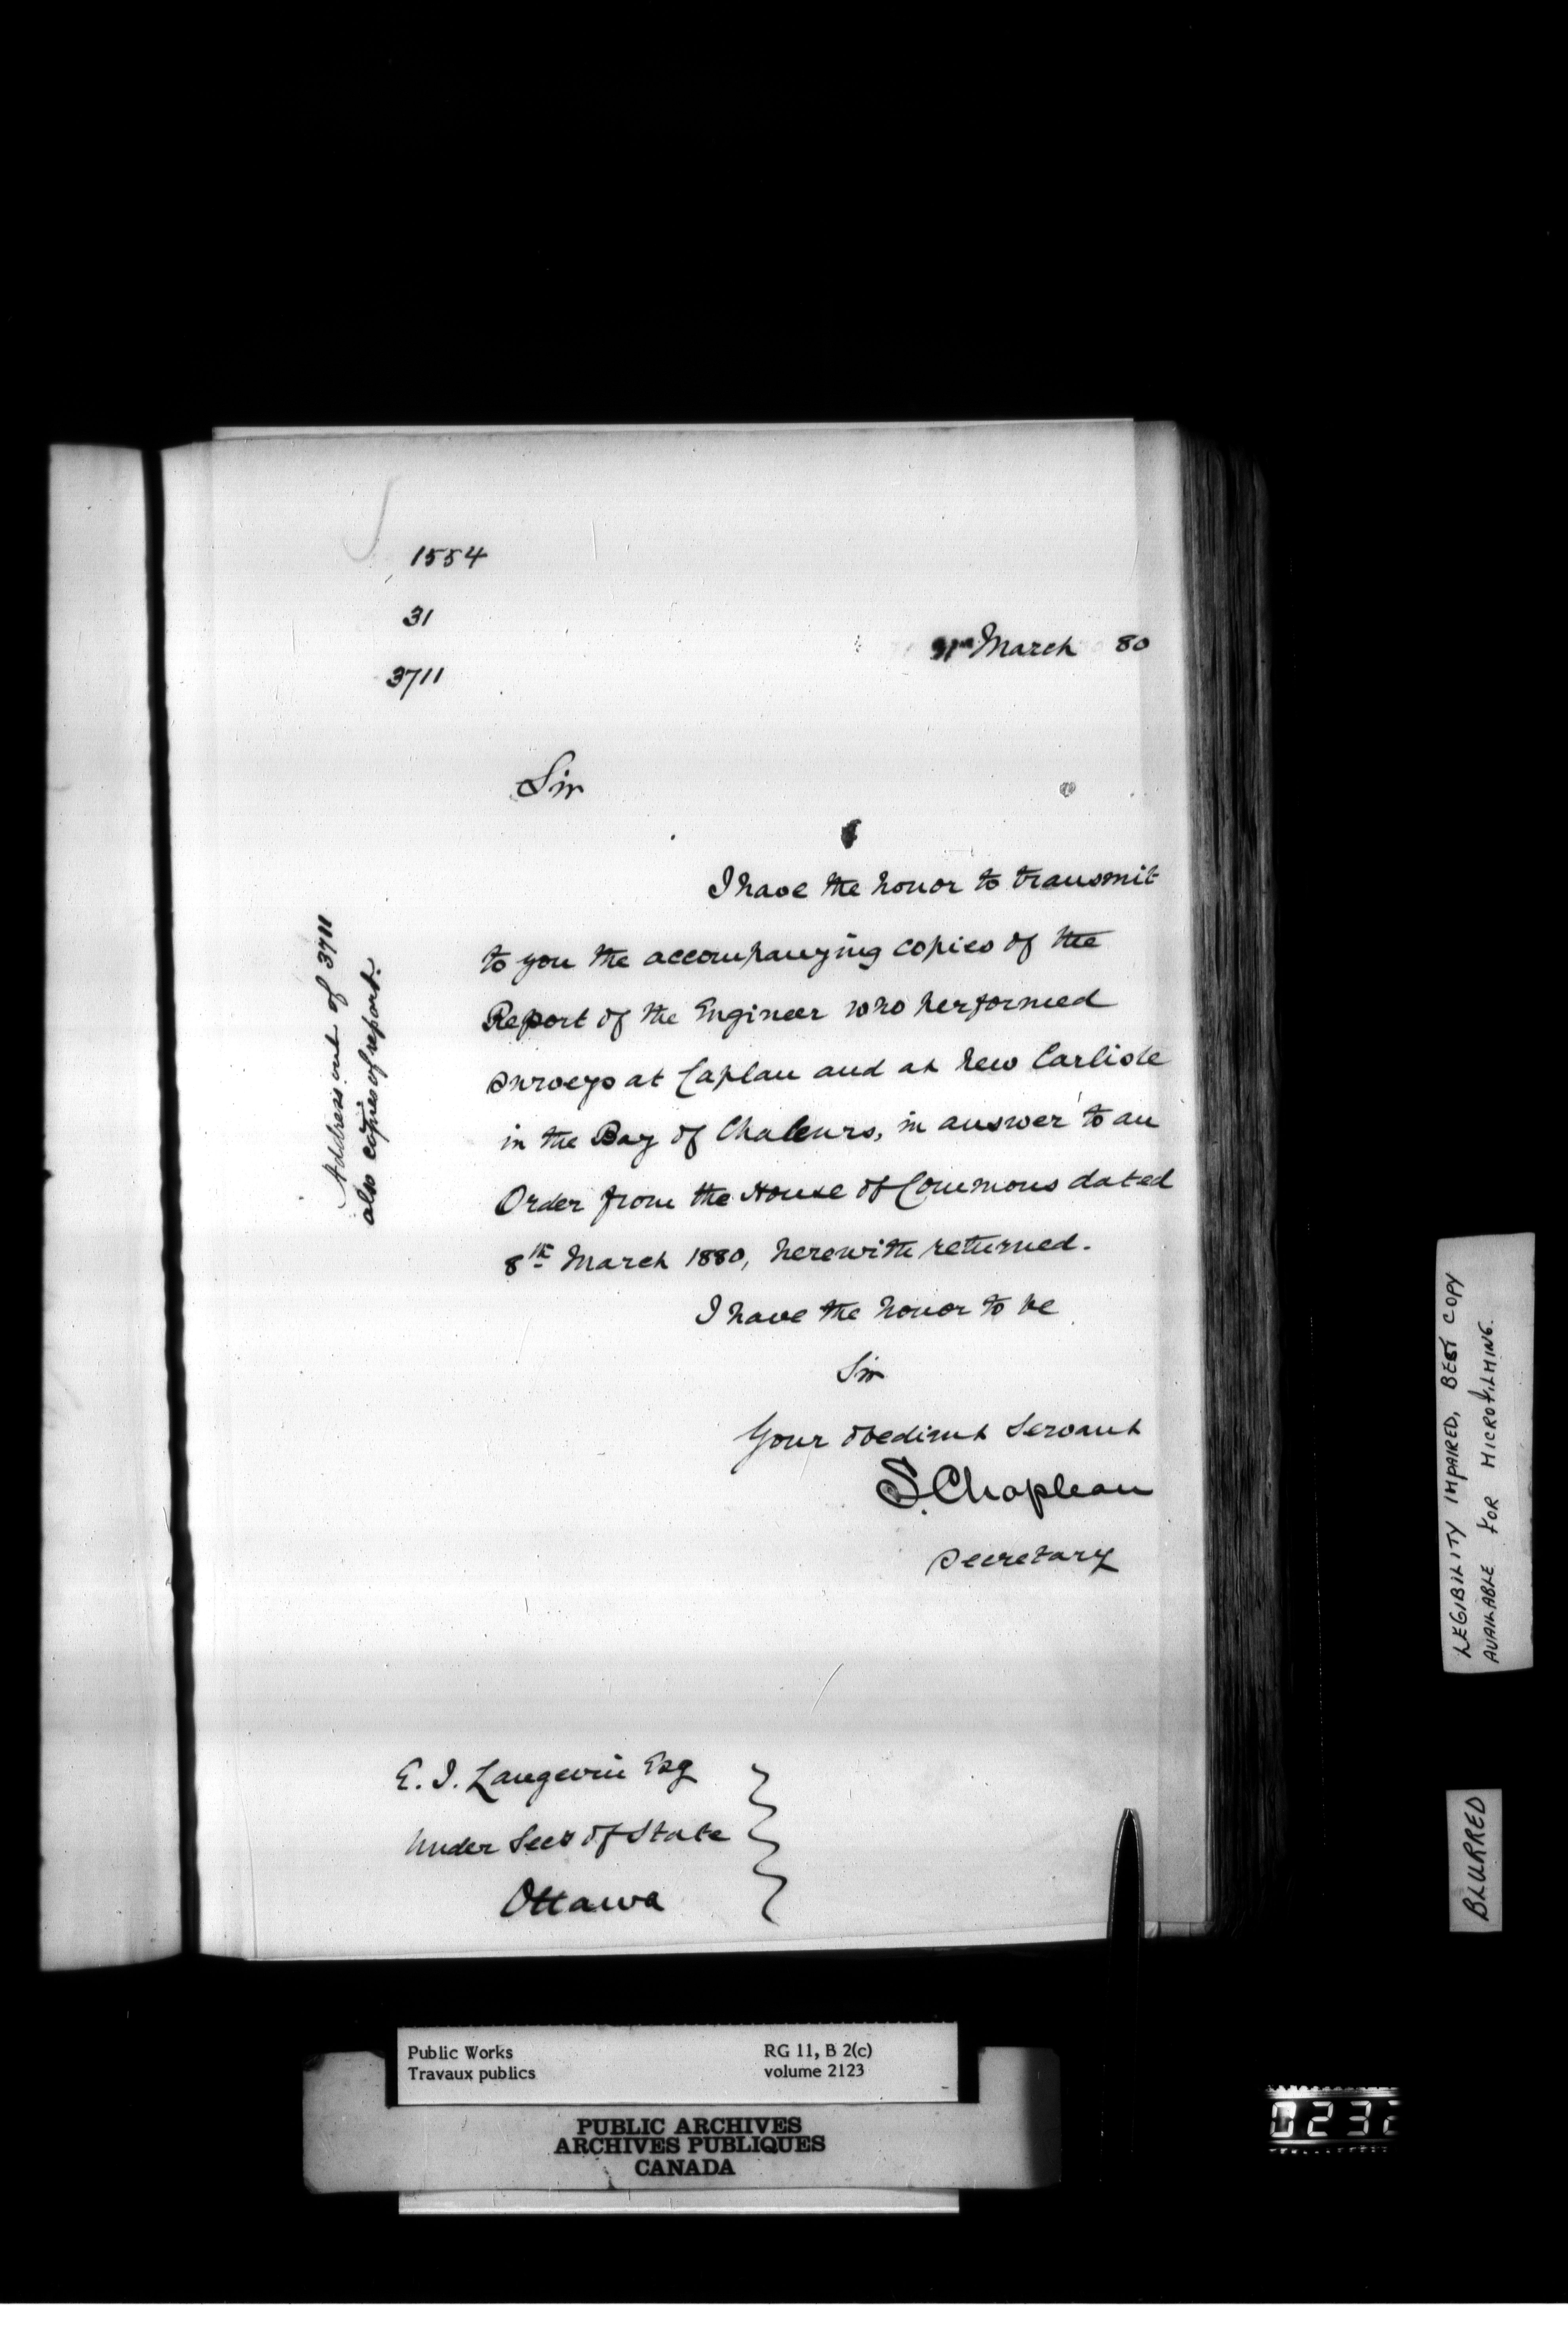 1554
31
3711
31st March 80
Sir
I have the honor to transmit
to you the accompanying copies of the
Report of the Engineer who performed
surveys at Caplan and at New Carlisle
in the Bay of Chaleurs, in answer to an
Order from the House of Commons dated
8th March 1880, herewith returned.
I have the honor to be
Sir
Your obedient Servant
S. Chapleau
Secretary
Address out of 3711
also copies of report.
E. J. Langevin Esq
Under Secy of State
Ottawa
LEGIBILITY IMPAIRED, BEST COPY
AVAILABLE FOR MICROFILMING.
BLURRED
Public Works
Travaux publics
RG 11, B 2(c)
volume 2123
PUBLIC ARCHIVES
ARCHIVES PUBLIQUES
CANADA
0232